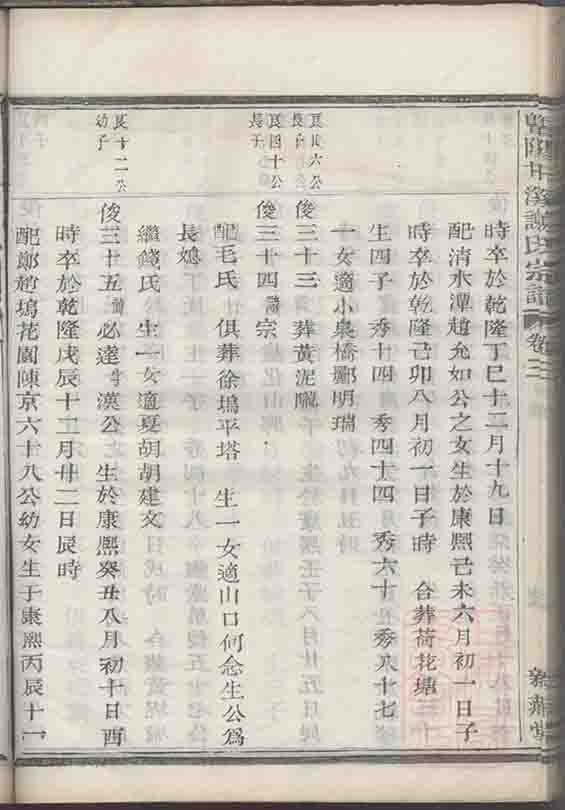 暨陽
溪
氏宗譜
卷三
時卒於乾隆丁巳十二月十九日
配清水潭趙允如公之女生於康熙己未六月初一日子
時卒於乾隆己卯八月初一日子時 合葬荷花塘
生四子 秀十四 秀四十四 秀六十 秀八十七
一女適小泉橋酈明瑞
良 六公
長子
俊三十三 葬黃泥隴
良四十公
長子
俊三十四諱宗
配毛氏 俱葬徐塢平塔 生一女適山口何念生公爲
長媳
繼錢氏 生一女適夏胡胡建文
良十二公
幼子
俊三十五諱必達字漢公 生於康熙癸丑八月初十日酉
時卒於乾隆戊辰十二月廿二日辰時
配鄭 塢花園陳京六十八公幼女生于康熙丙辰十一